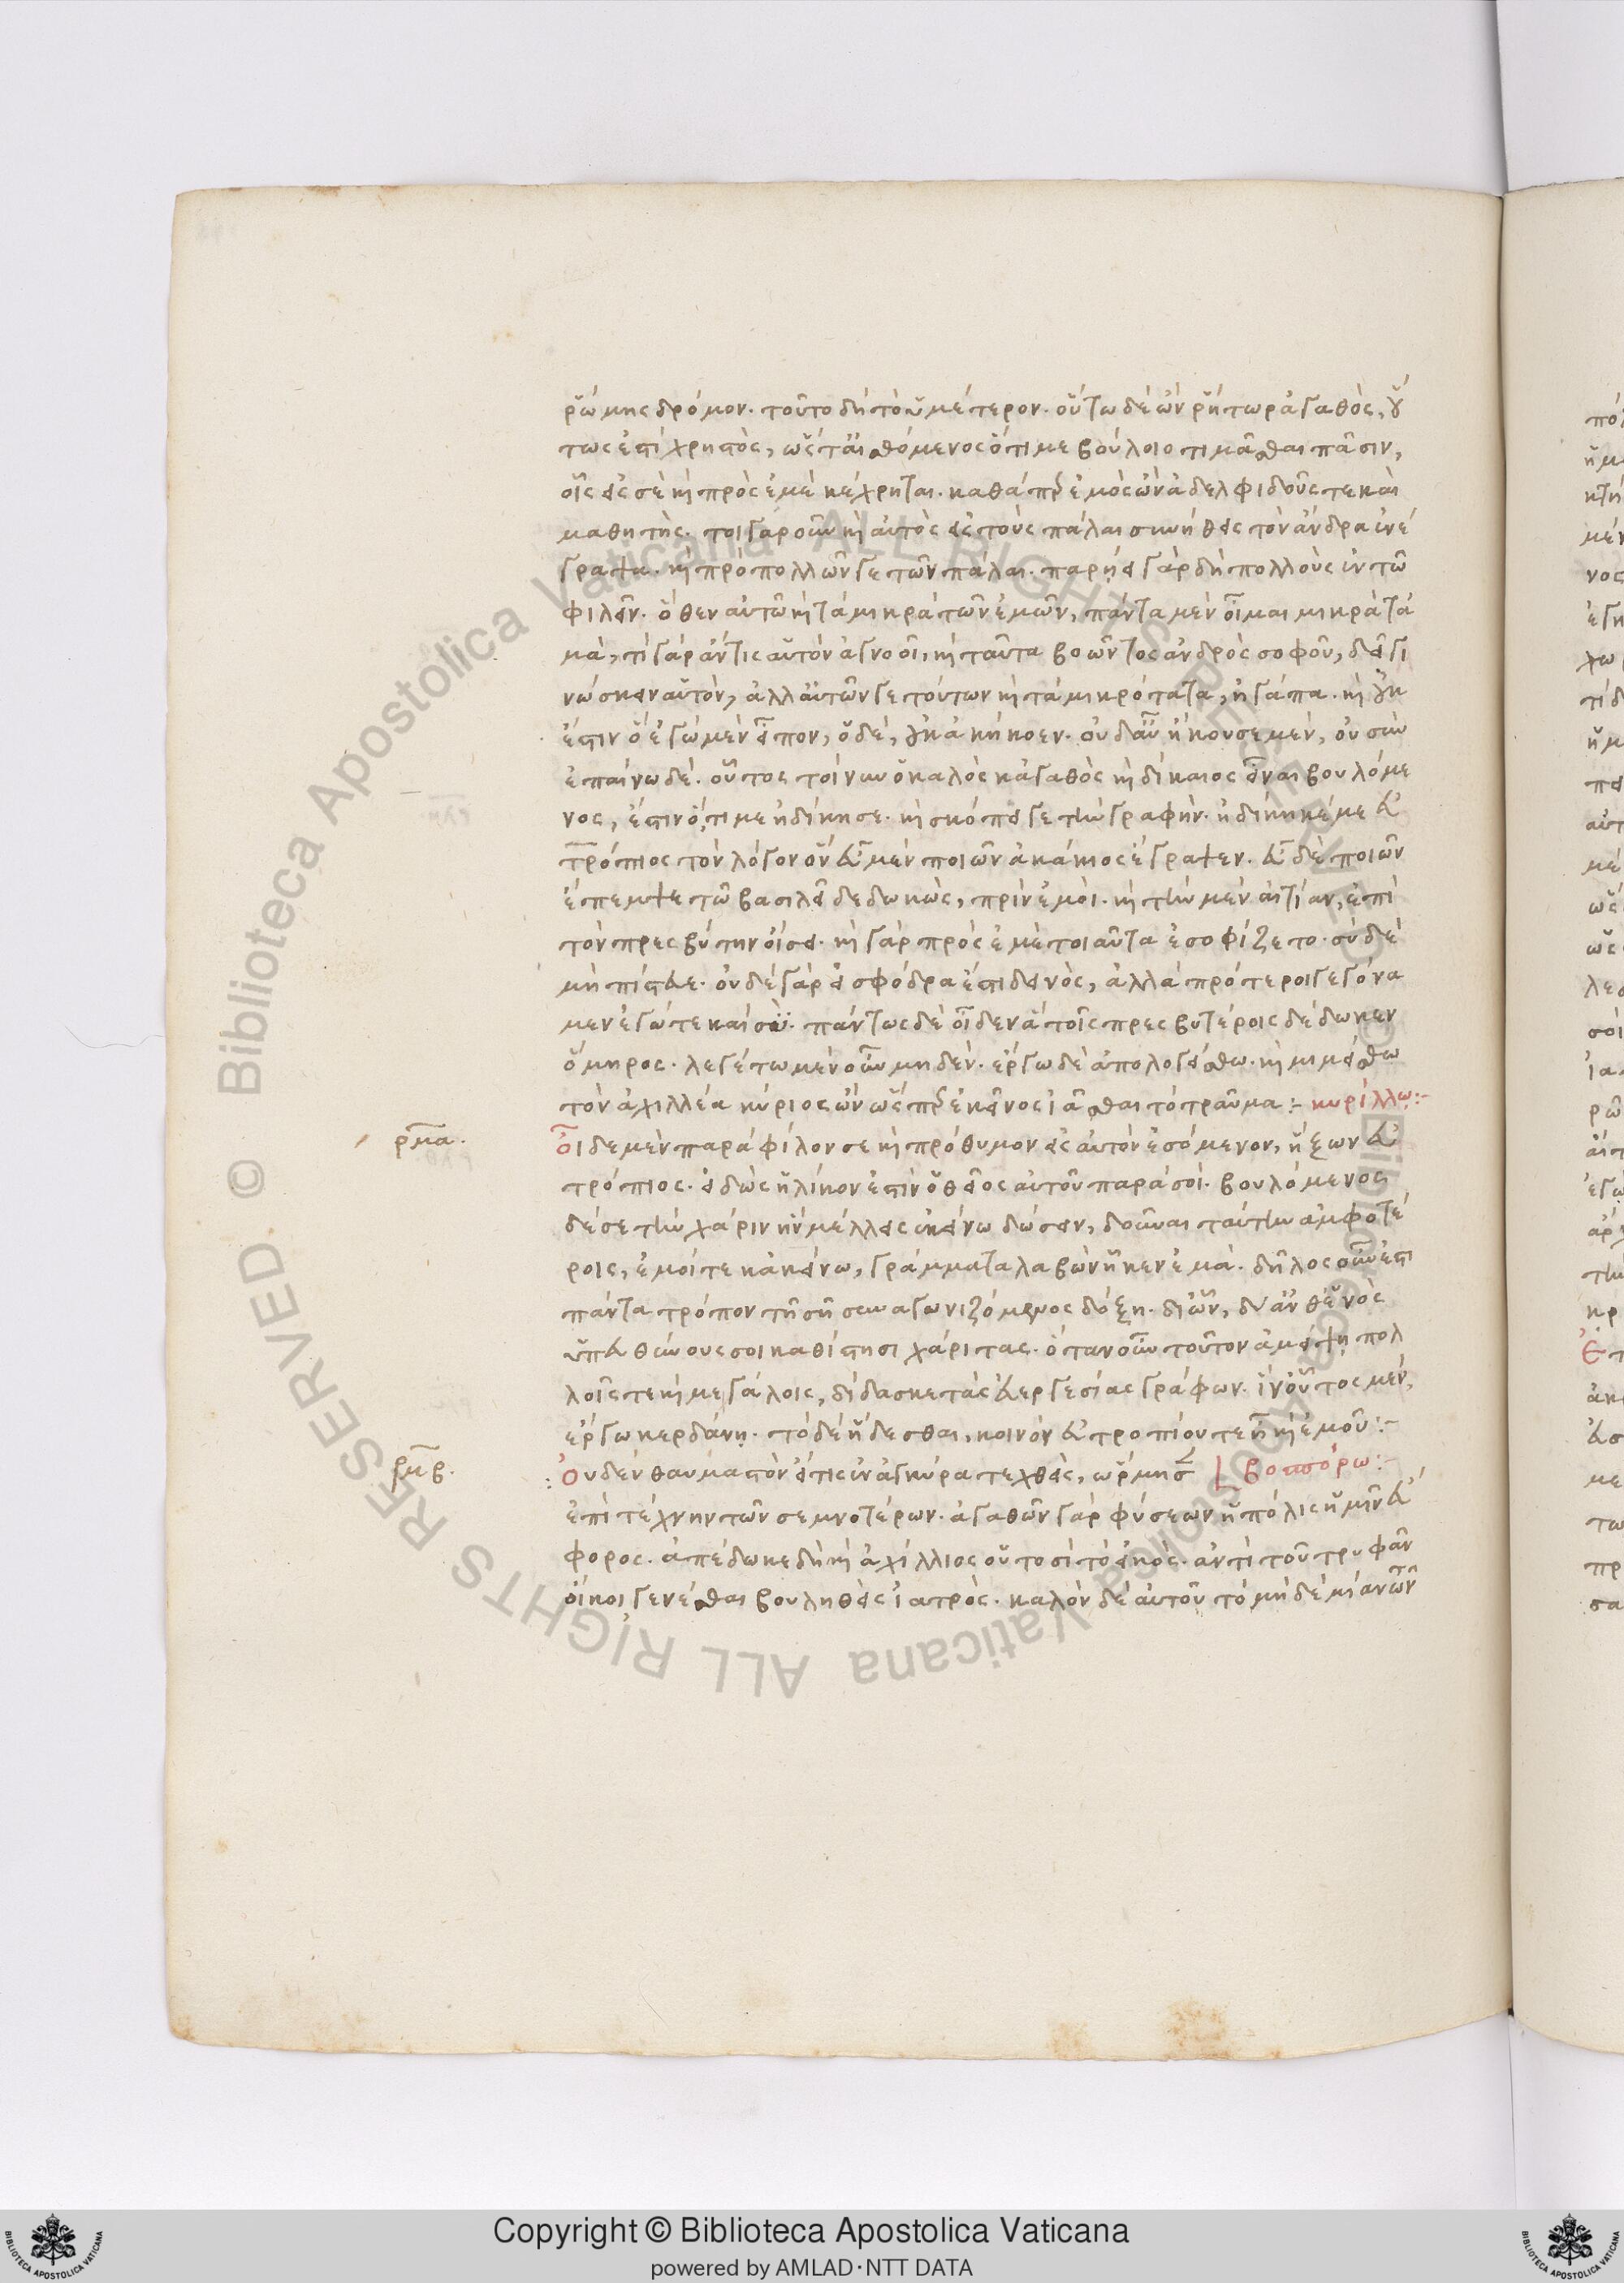 ῥώμης δρόμον. τοῦτο δὴ τὸ ὑμέτερον. οὕτω δὲ ὢν ῥήτωρ ἀγαθὸς, οὕ
τως ἐστὶ χρηστὸς, ὥστ' αἰσθόμενος ὅτι με βούλοιο τιμᾶσθαι πᾶσιν,
οἷς εἰς σὲ καὶ πρὸς ἐμὲ κέχρηται. καθάπερ ἐμὸς ὢν ἀδελφιδοῦς τε καὶ
μαθητής. τοιγαροῦν καὶ αὐτὸς εἰς τοὺς πάλαι συνήθεις τὸν ἄνδρα ἐνέ
γραψα. καὶ πρὸ πολλῶν γε τῶν πάλαι. παρῄει γὰρ δὴ πολλοὺς ἐν τῶ
φιλεῖν. ὅθεν αὐτῶ καὶ τὰ μικρὰ τῶν ἐμῶν, πάντα μὲν οἶμαι μικρὰ τἀ
μὰ, τί γὰρ ἄν τις αὐτὸν ἀγνοοῖ, καὶ ταῦτα βοῶντος ἀνδρὸς σοφοῦ, δεῖ γι
νώσκειν αὐτὸν, ἀλλ' αὐτῶν γε τούτων καὶ τὰ μικρότατα, ἠγάπα. καὶ οὐκ
ἔστιν ὃ ἐγὼ μὲν εἶπον, ὁ δὲ, οὐκ ἀκήκοεν. οὐδ' αὖ ἤκουσε μὲν, οὐ σὺν
ἐπαίνω δέ. οὗτος τοίνυν ὁ καλὸς κἀγαθὸς καὶ δίκαιος εἶναι βουλόμε
νος, ἔστιν ὅ,τι με ἠδίκησε. καὶ σκόπει γε τὴν γραφήν. ἠδίκηκέ με εὐ
τρόπιος τὸν λόγον ὃν εὖ μὲν ποιῶν ἀκάκιος ἔγραψεν. εὖ δὲ ποιῶν
ἔπεμψε τῶ βασιλεῖ δεδωκὼς, πρὶν ἐμοί. καὶ τὴν μὲν αἰτίαν, ἐπὶ
τὸν πρεσβύτην οἴσει. καὶ γὰρ πρὸς ἐμὲ τοιαῦτα ἐσοφίζετο. σὺ δὲ
μὴ πίστευε. οὐδὲ γὰρ εἰ σφόδρα ἐστὶ δεινὸς, ἀλλὰ πρότεροι γεγόνα
μεν ἐγώ τε καὶ σύ. πάντως δὲ οἶδεν ἃ τοῖς πρεσβυτέροις δέδωκεν
ὅμηρος. λεγέτω μὲν οὖν μηδέν. ἔργω δὲ ἀπολογείσθω. καὶ μιμείσθω
τὸν ἀχιλλέα κύριος ὢν ὥσπερ ἐκεῖνος ἰᾶσθαι τὸ τραῦμα :- κυρίλλω :-
ρμα. Οἶδε μὲν παρὰ φίλον σε καὶ πρόθυμον εἰς αὐτὸν ἐσόμενον, ἥξων εὐ
τρόπιος. εἰδὼς ἡλίκον ἐστὶν ὁ θεῖος αὐτοῦ παρὰ σοί. βουλόμενος
δέ σε τὴν χάριν ἣν μέλλεις ἐκείνω δώσειν, δοῦναι ταύτην ἀμφοτέ
ροις, ἐμοί τε κἀκείνω, γράμματα λαβὼν ἧκεν ἐμά. δῆλος οὖν ἐστι
πάντα τρόπον τῆ σῆ συναγωνιζόμενος δόξη. δι' ὧν, δι' ἀνθ' ἑνὸς
ὑπευθύνους σοι καθίστησι χάριτας. ὅταν οὖν τοῦτον ἀμείψη πολ
λοῖς τε καὶ μεγάλοις, δίδασκε τὰς εὐεργεσίας γράφων. ἵν' οὗτος μὲν,
ἔργω κερδάνη. τὸ δὲ ἥδεσθαι, κοινὸν εὐτροπίου τε ἦ καὶ ἐμοῦ :-
ρμβ. Οὐδὲν θαυμαστὸν εἴ τις ἐν ἀγκύρα τεχθεὶς, ὥρμησεν βοσπόρω :-
ἐπὶ τέχνην τῶν σεμνοτέρων. ἀγαθῶν γὰρ φύσεων ἡ πόλις ἡμῖν εὔ
φορος. ἀπέδωκε δὴ καὶ ἀχίλλιος οὑτοσὶ τὸ εἰκός. ἀντὶ τοῦ τρυφᾶν
οἴκοι γενέσθαι βουληθεὶς ἰατρός. καλὸν δὲ αὐτοῦ τὸ μηδεμίαν ὧν
Copyright © Biblioteca Apostolica Vaticana
powered by AMLAD·NTT DATA